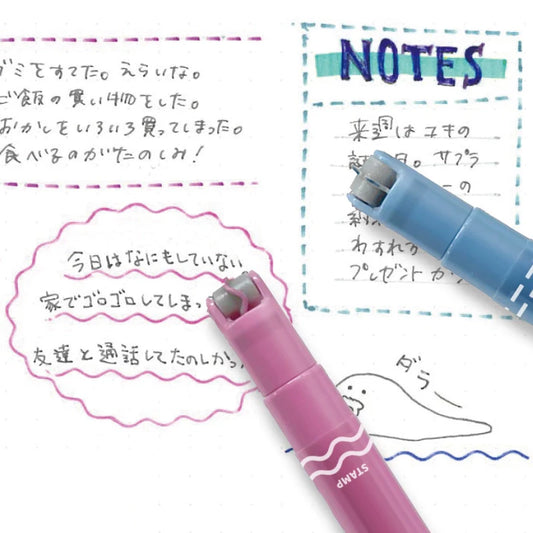 ゴミをすてた。えらいな。
ご飯の買い物をした。
おかしをいろいろ買ってしまった。
食べるのがたのしみ!
NOTES
来週はユキの
サプラ
の
わすれ
プレゼント
今日はなにもしていない
家でゴロゴロしてしまっ
友達と通話してたのしかっ
ダラー
STAMP